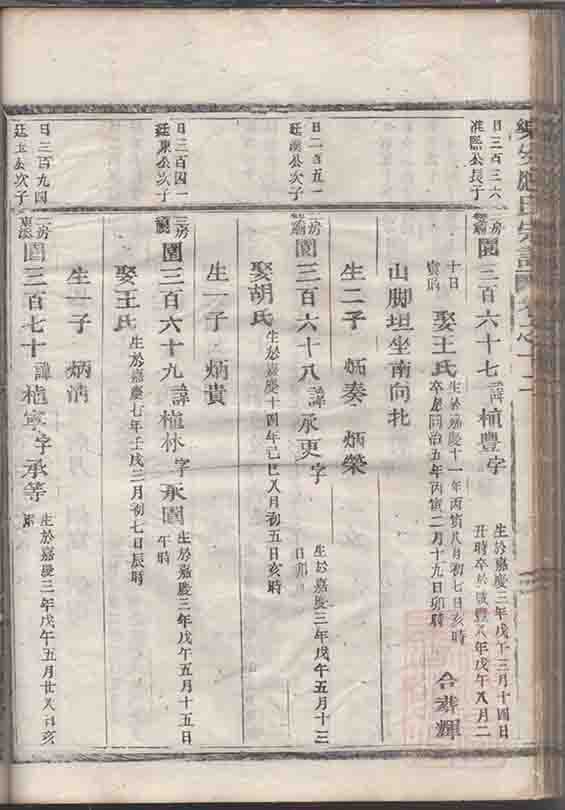 日三百三六
淮熙公長子
二房
園三百六十七諱植豐字
生於嘉慶三年戊午三月十四日
丑時卒於咸豐八年戊午八月二
十日
寅時
娶王氏
生於嘉慶十一年丙寅八月初七日亥時
卒於同治五年丙寅二月十九日卯時
合葬輝
山脚坦坐南向北
生二子 炳奏 炳榮
日一百五一
廷漢公次子
二房
園三百六十八諱承更字
生於嘉慶三年戊午五月十三
日卯
娶胡氏
生於嘉慶十四年己巳八月初五日亥時
生一子 炳貴
日三百四一
廷東公次子
三房
園三百六十九諱植林字承園
生於嘉慶三年戊午五月十五日
午時
娶王氏
生於嘉慶七年壬戌三月初七日辰時
生一子 炳清
日三百九四
廷玉公次子
二房
東溪
園三百七十諱植寧字承等
生於嘉慶三年戊午五月廿八日亥